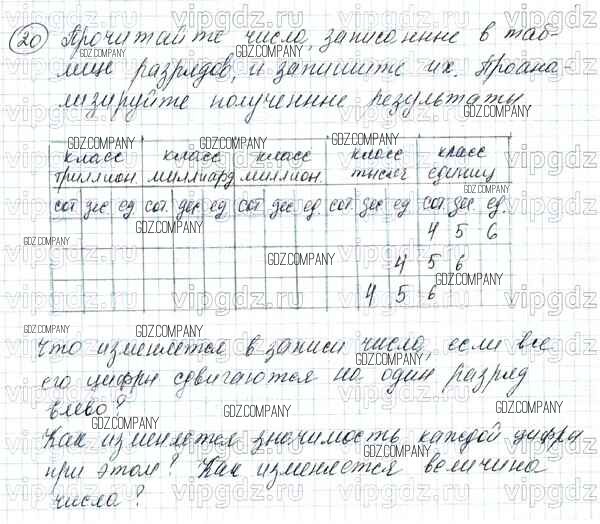 20 Прочитайте числа, записанные в таб-
лице разрядов, и запишите их. Проана-
лизируйте полученные результаты
класс триллион. класс миллиард класс миллион. класс тысяч класс единиц
сот дес ед сот. дес ед сот дес ед. сот. дес ед сот. дес ед.
4 5 6
4 5 6
4 5 6
Что изменяется в записи числа, если все
его цифры сдвигаются на один разряд
влево?
Как изменяется значимость каждой цифры
при этом? Как изменяется величина
числа?